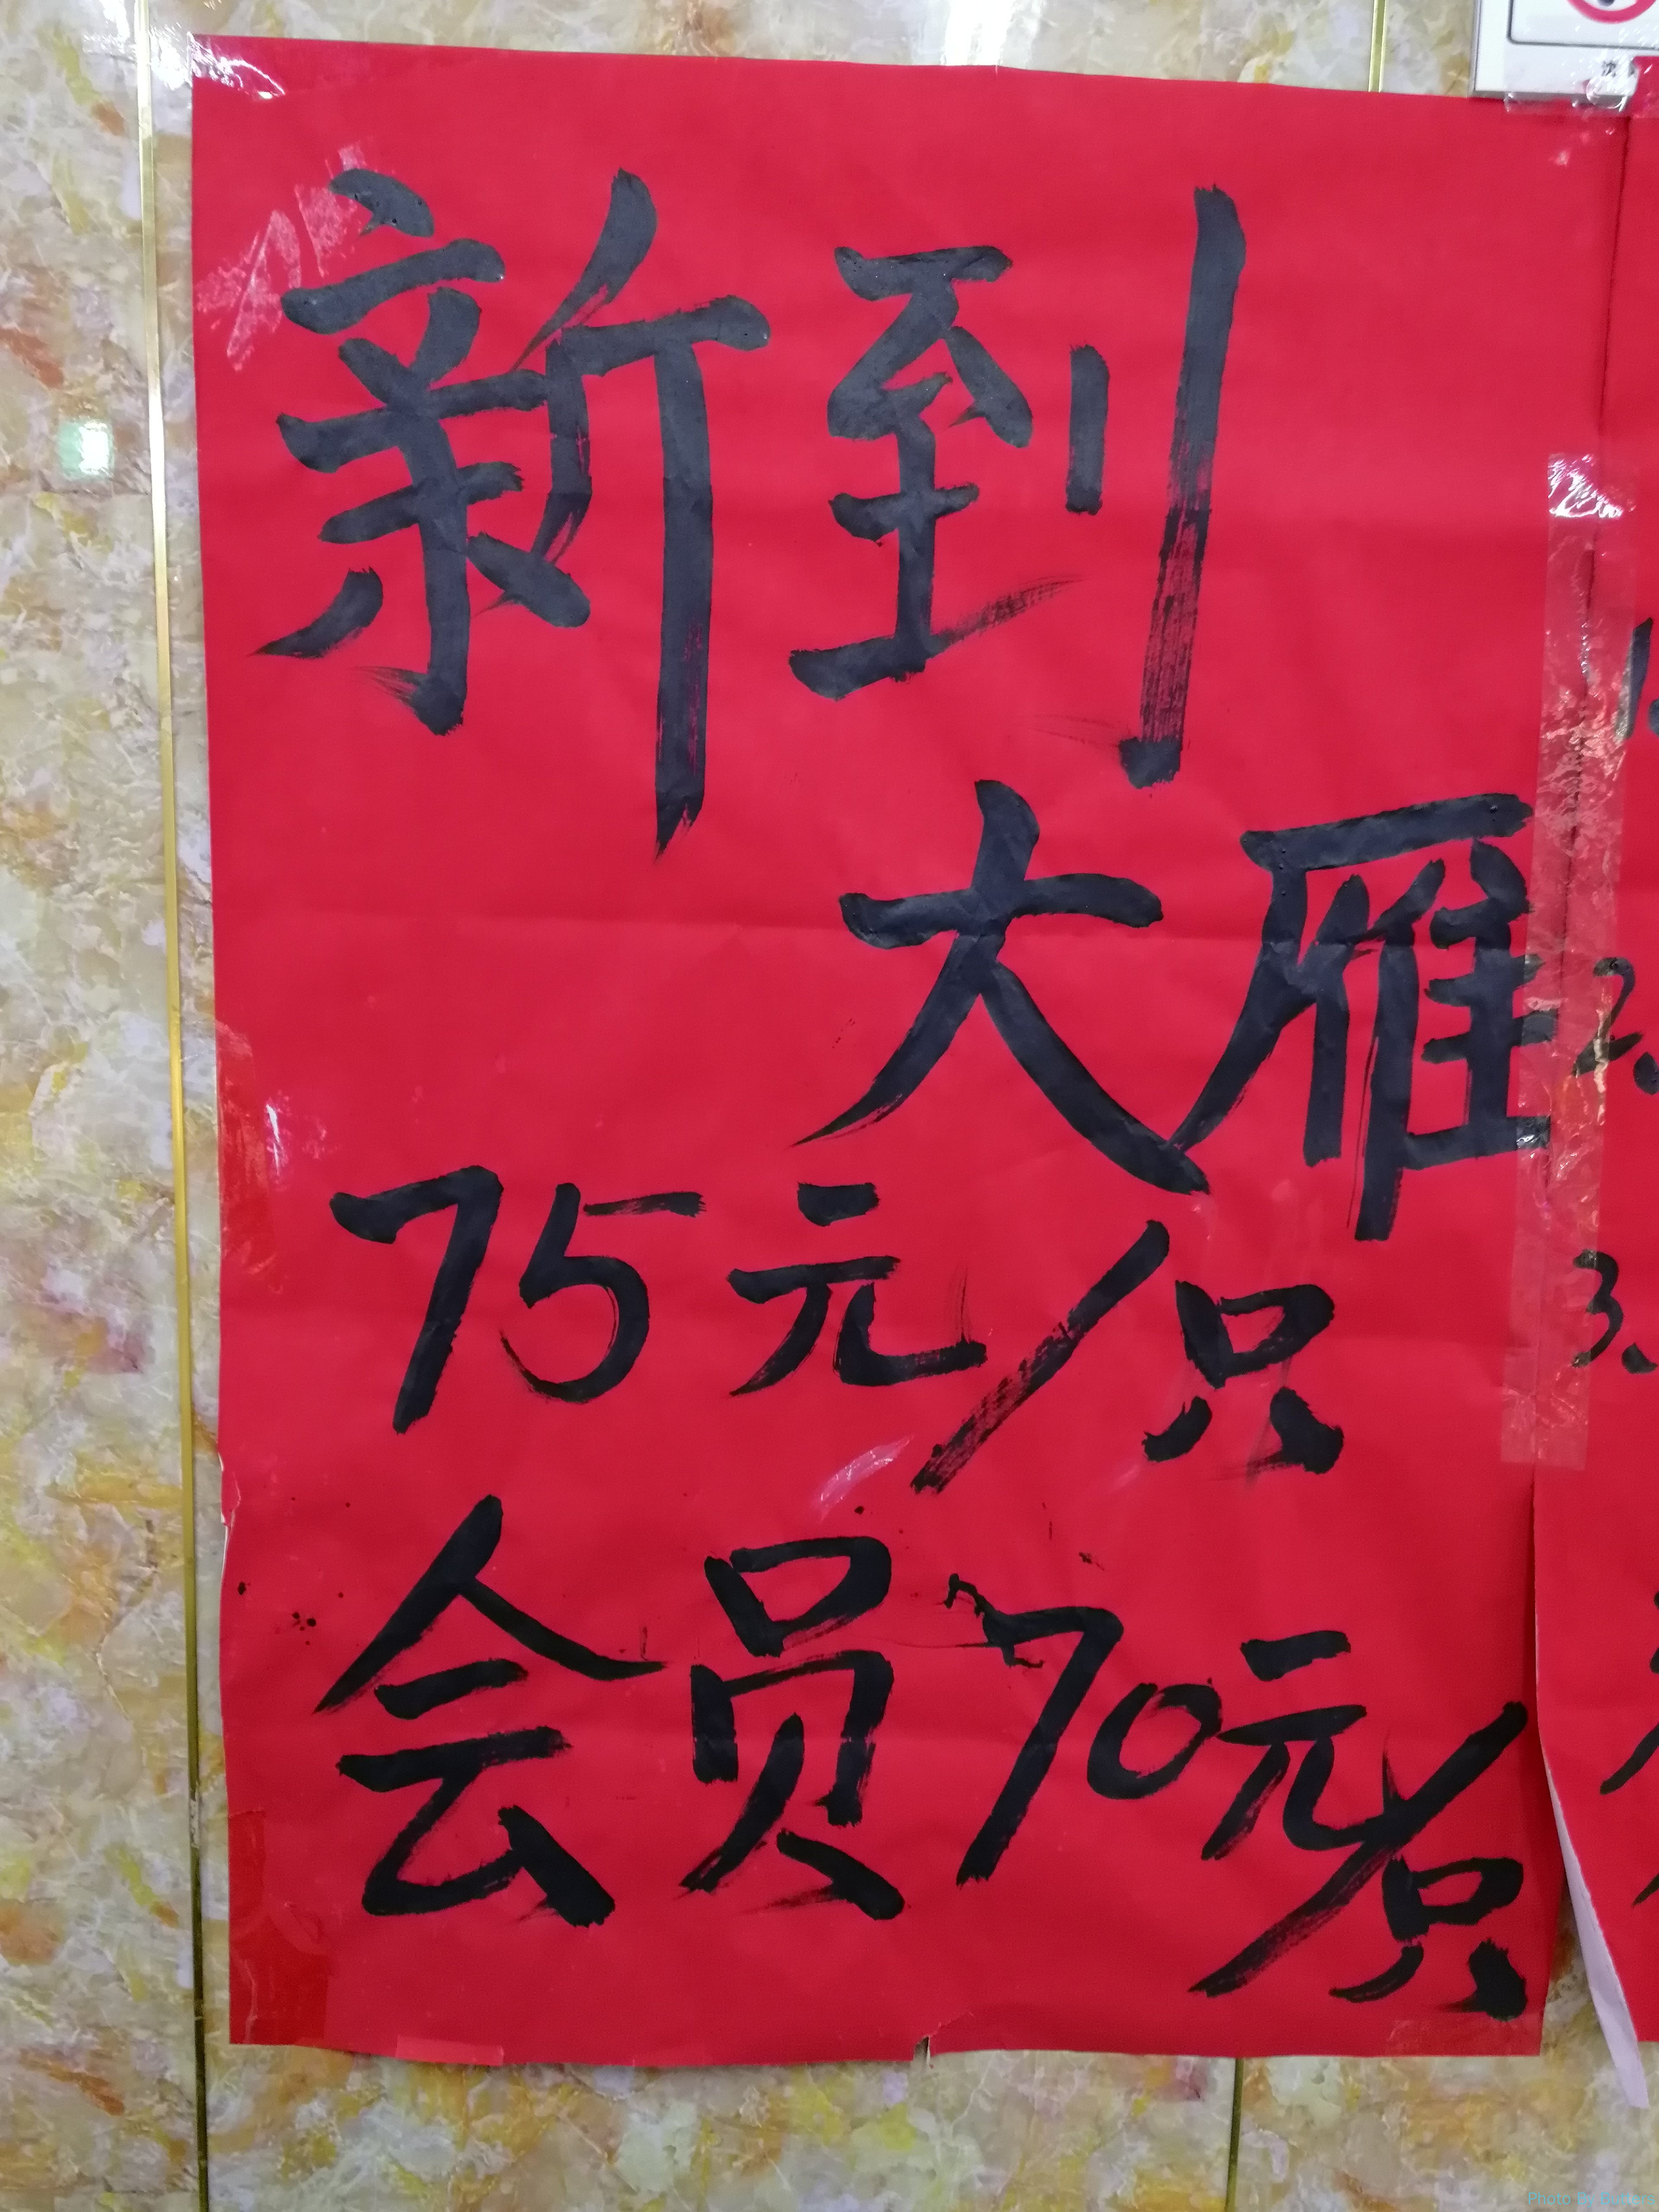 新到
大雁
75元/只
会员70元/只
2.
3.